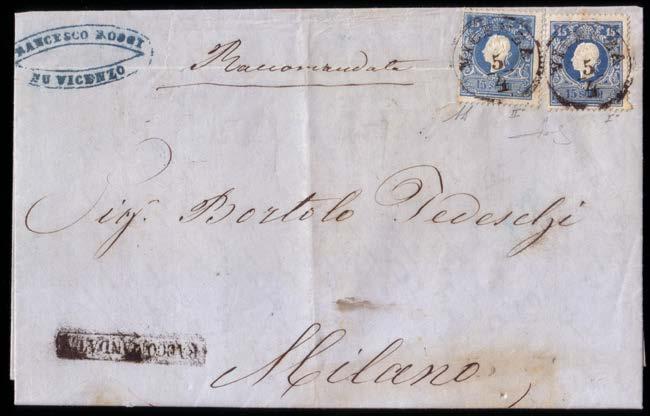 FRANCESCO ROSSI
FU VICENZO
Raccomandata
15 15
5
4
15 S
5
4
15 S
II° I°
Sig.r Bortolo Tedeschi
RACCOMANDATA
Milano